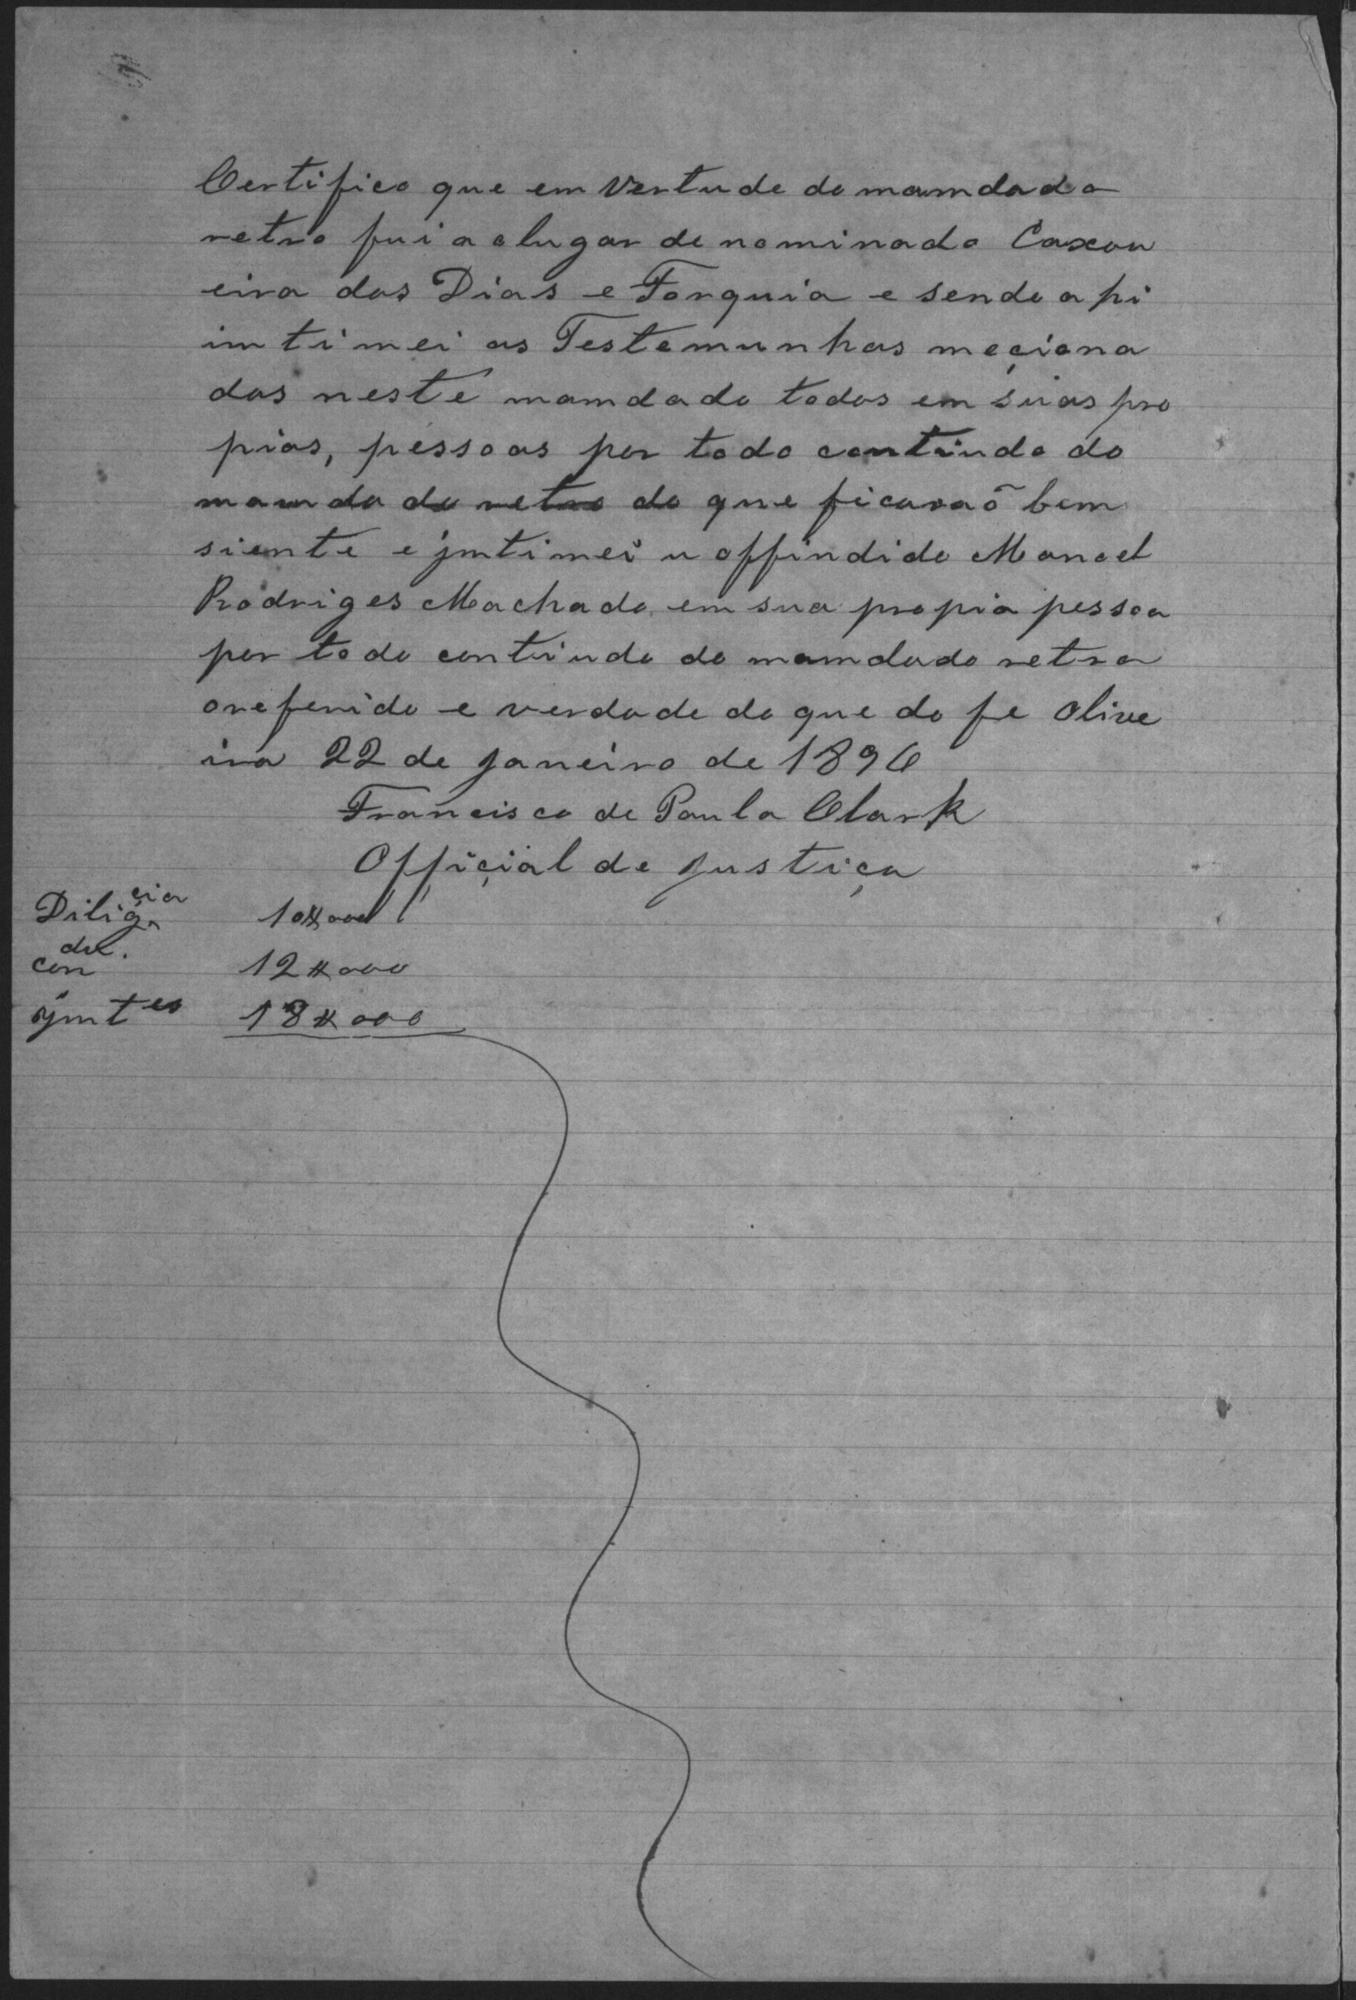 Certifico que em vertude do mamdado
retro fui ao lugar denominado Caxou
eira dos Dias e Forquia e sendo a hi
imtimei as Testemunhas meçiona
das neste mamdado todos em suas pro
pias, pessoas por todo contiudo do
mamdado retro do que ficaraõ bem
siente e jmtimei u offindido Manoel
Rodriges Machado em sua propia pessoa
por todo contiudo do mamdado retro
oreferido e verdade do que do fe Olive
ira 22 de Janeiro de 1896
Francisco de Paula Clark
Offiçial de Justiça
Diligçia 10$000
con 12$000
jmtes 18$000